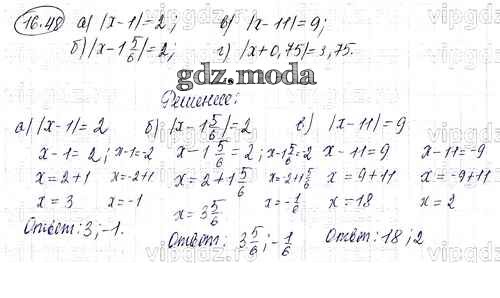 16.48 а) |x-1|=2; в) |x-11|=9;
б) |x-1 5/6|=2; г) |x+0,75|=3,75.
gdz.moda
Решение:
а) |x-1|=2 б) |x-1 5/6|=2 в) |x-11|=9
x-1=2; x-1=-2 x-1 5/6=2; x-1 5/6=-2 x-11=9 x-11=-9
x=2+1 x=-2+1 x=2+1 5/6 x=-2+1 5/6 x=9+11 x=-9+11
x=3 x=-1 x=3 5/6 x=-1/6 x=18 x=2
Ответ: 3; -1. Ответ: 3 5/6; -1/6 Ответ: 18; 2